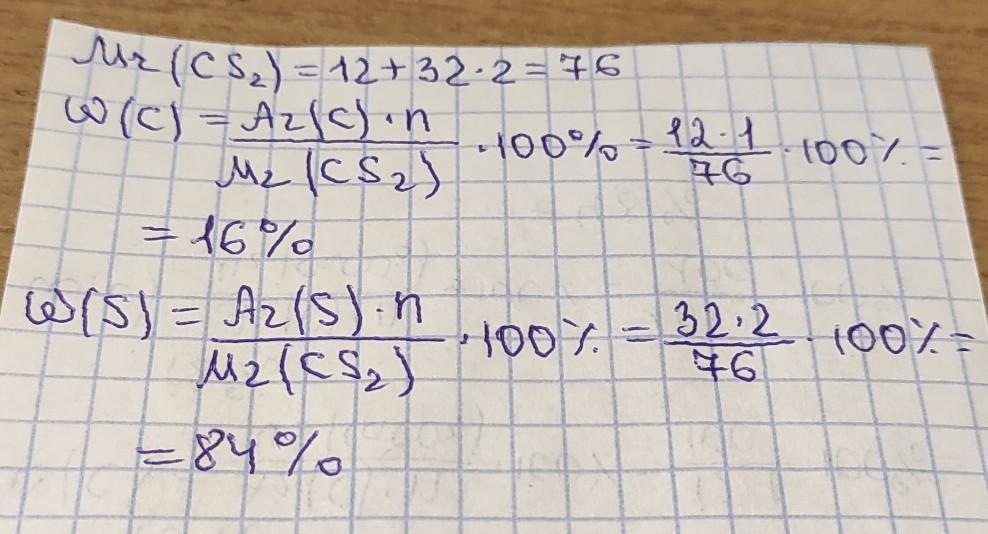 Mr(CS₂)=12+32·2=76
ω(C) = Ar(C)·n / Mr(CS₂) ·100% = 12·1 / 76 ·100% =
= 16%
ω(S) = Ar(S)·n / Mr(CS₂) ·100% = 32·2 / 76 ·100% =
= 84%